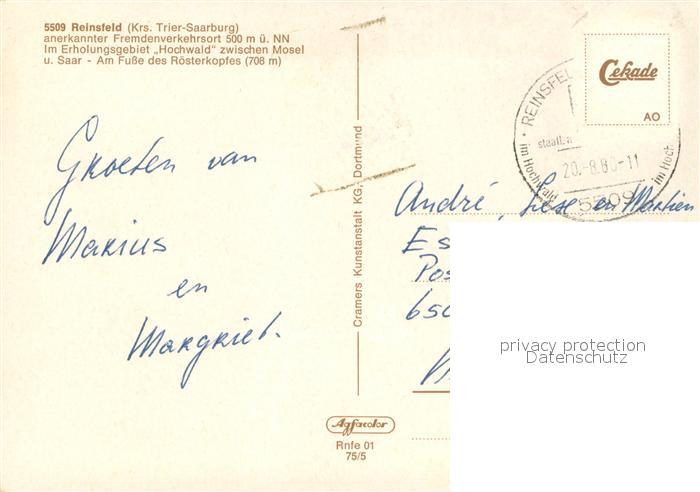 5509 Reinsfeld (Krs. Trier-Saarburg)
anerkannter Fremdenverkehrsort 500 m ü. NN
Im Erholungsgebiet „Hochwald" zwischen Mosel
u. Saar - Am Fuße des Rösterkopfes (708 m)
Groeten van
Marius
en
Margriet.
Cramers Kunstanstalt KG, Dortmund
Agfacolor
Rnfe 01
75/5
Cekade
AO
REINSFEL
staatl. a
20.-8.80-11
im Hochwald
im Hoch
5509
André, Liese en Martien
Es
Pos
650
privacy protection
Datenschutz